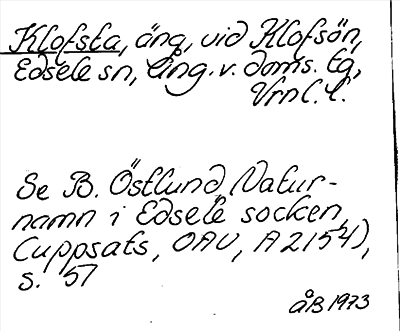 Klofsta, äng, vid Klofsön,
Edsele sn, Ång. v. doms. tg,
Vrnl. l.
Se B. Östlund, Natur-
namn i Edsele socken,
(uppsats, OAU, A 2154),
s. 51
ÅB 1973